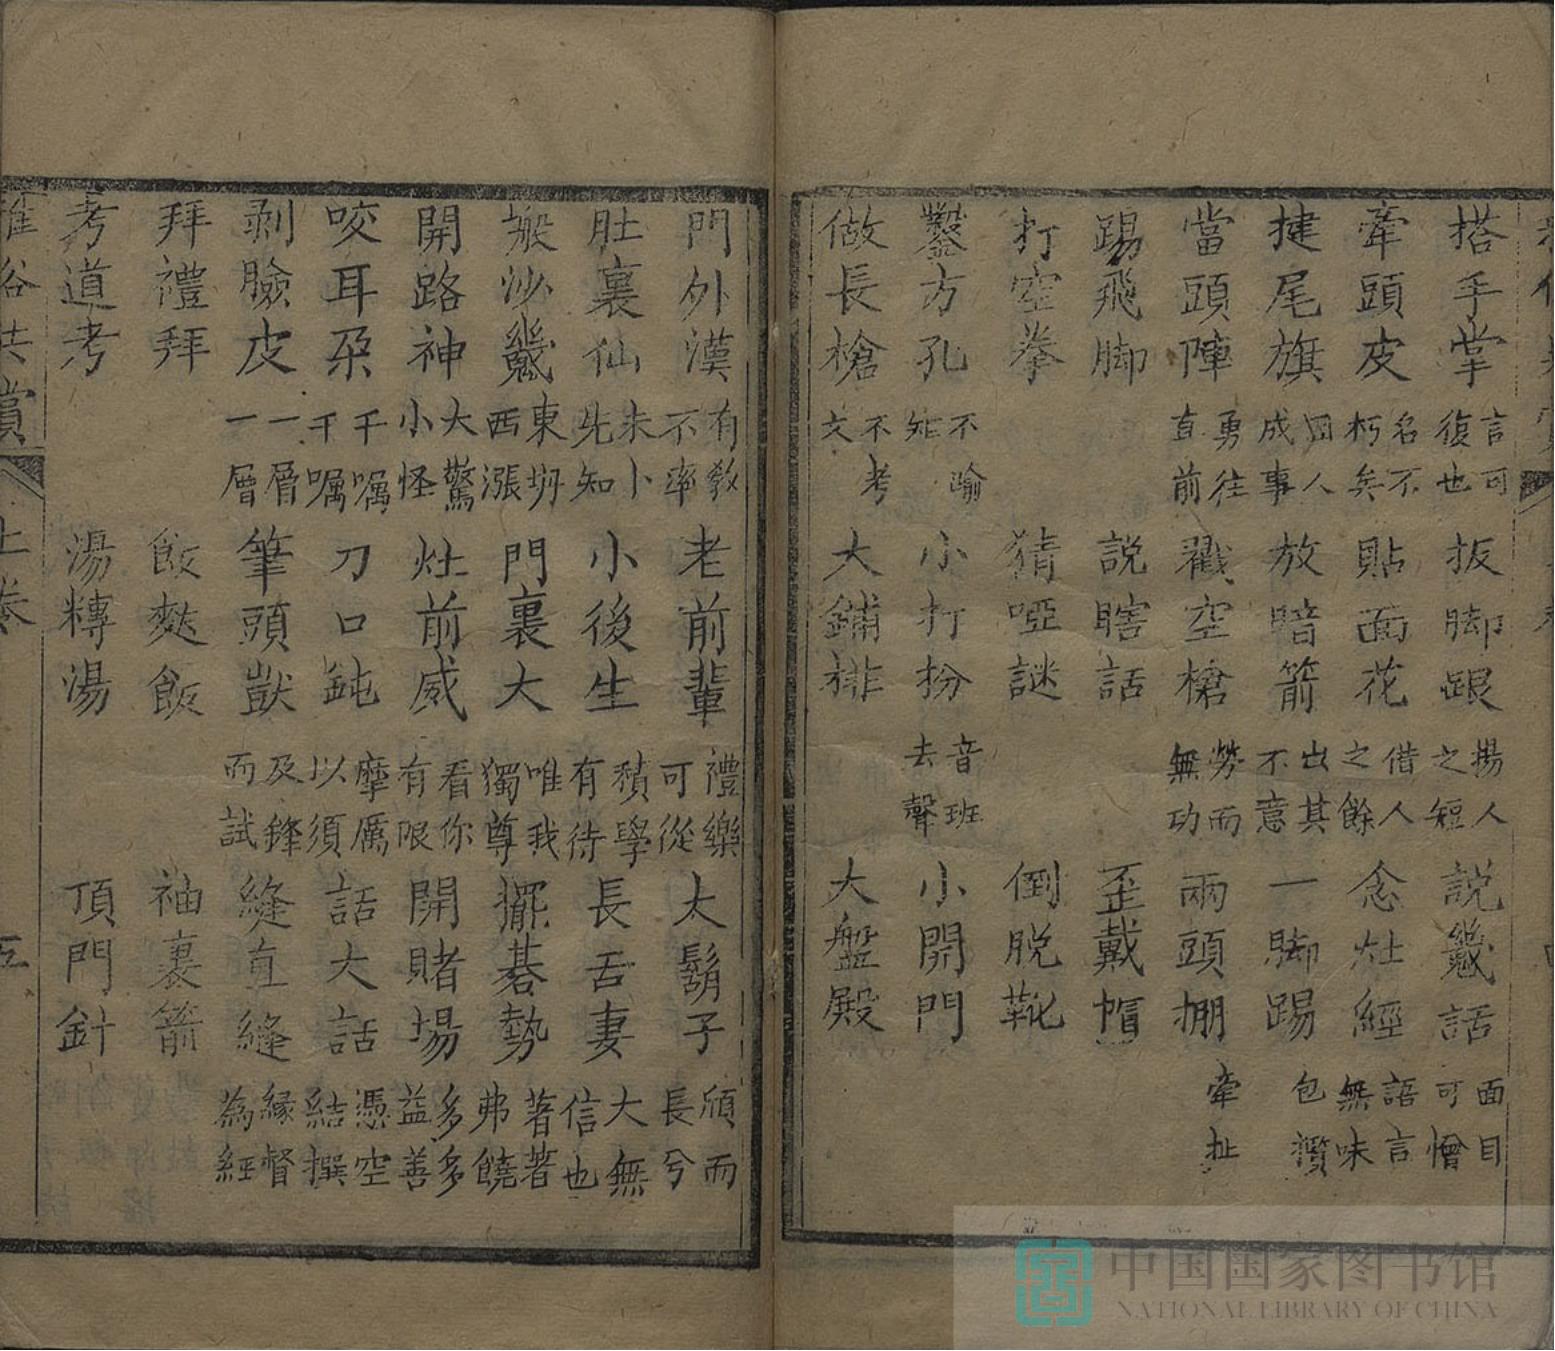 搭手掌 言可復也 扳脚跟 揚人之短 說幾話 面目可憎
牽頭皮 名不朽矣 貼面花 借人之餘 念灶經 語言無味
揵尾旗 因人成事 放暗箭 出其不意 一脚踢 包攬
當頭陣 勇往直前 戳空槍 勞而無功 兩頭掤 牽扯
踢飛脚 說瞎話 歪戴帽
打空拳 猜啞謎 倒脱靴
鑿方孔 不踰矩 小打扮 音班去聲 小開門
做長槍 不考文 大鋪排 大盤殿
門外漢 有教不率 老前輩 禮樂可從 太鬍子 頎而長兮
肚裏仙 未卜先知 小後生 積學有待 長舌妻 大無信也
搬沙幾 東坍西漲 門裏大 唯我獨尊 擺碁勢 著著弗饒
開路神 大驚小怪 灶前威 看你有限 開賭場 多多益善
咬耳朶 千嘱千嘱 刀口鈍 摩厲以須 話大話 憑空結撰
剥臉皮 一層一層 筆頭獃 及鋒而試 縫直縫 緣督為經
拜禮拜 飯麩飯 袖裏箭
考道考 湯轉湯 頂門針
雅俗共賞 上卷 五
中国国家图书馆
NATIONAL LIBRARY OF CHINA